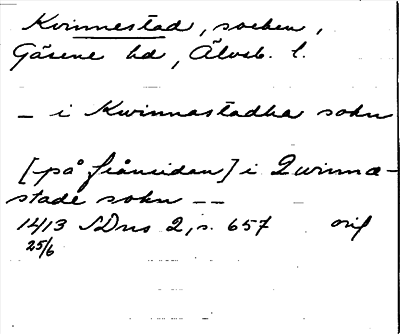 Kvinnestad, socken,
Gäsene hd, Älvsb. l.
_ i Kwinnastadha sokn
[på frånsidan] i Qwinna-
stade sokn _ _
1413 SDns 2, s. 657 orig
25/6